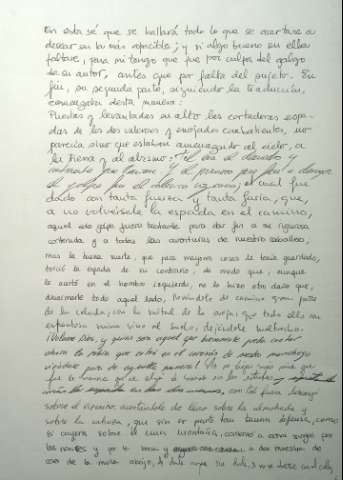 En esta sé que se hallará todo lo que se acertare a
desear en la más apacible; y si algo bueno en ella
faltare, para mí tengo que fue por culpa del galgo
de su autor, antes que por falta del sujeto. En
fin, su segunda parte, siguiendo la traducción,
comenzaba desta manera:
Puestas y levantadas en alto las cortadoras espa-
das de los dos valerosos y enojados combatientes, no
parecía sino que estaban amenazando al cielo, a
la tierra y al abismo: tal era el denuedo y
y el primero que fue a descargar
el golpe fue el colérico vizcaíno; el cual fue
dado con tanta fuerza y tanta furia, que,
a no volvérsele la espada en el camino,
aquel solo golpe fuera bastante para dar fin a su rigurosa
contienda y a todas las aventuras de nuestro caballero;
mas la buena suerte, que para mayores cosas le tenía guardado,
torció la espada de su contrario, de modo que, aunque
le acertó en el hombro izquierdo, no le hizo otro daño que
desarmarle todo aquel lado, llevándole de camino gran parte
de la celada, con la mitad de la oreja; que todo ello con
espantosa ruina vino al suelo, dejándole maltrecho.
¡Válame Dios, y quién será aquel que buenamente pueda contar
ahora la rabia que entró en el corazón de nuestro manchego
viéndose parar de aquella manera! No se diga más sino que
fue de manera que se alzó de nuevo en los estribos y
con tal furia descargó
sobre el vizcaíno acertándole de lleno sobre la almohada y
sobre la cabeza, que sin ser parte tan buena defensa, como
si cayera sobre él una montaña, comenzó a echar sangre por
las narices y por la boca y
de la mula abajo, de donde cayera sin duda, si no se abrazara con el cuello,